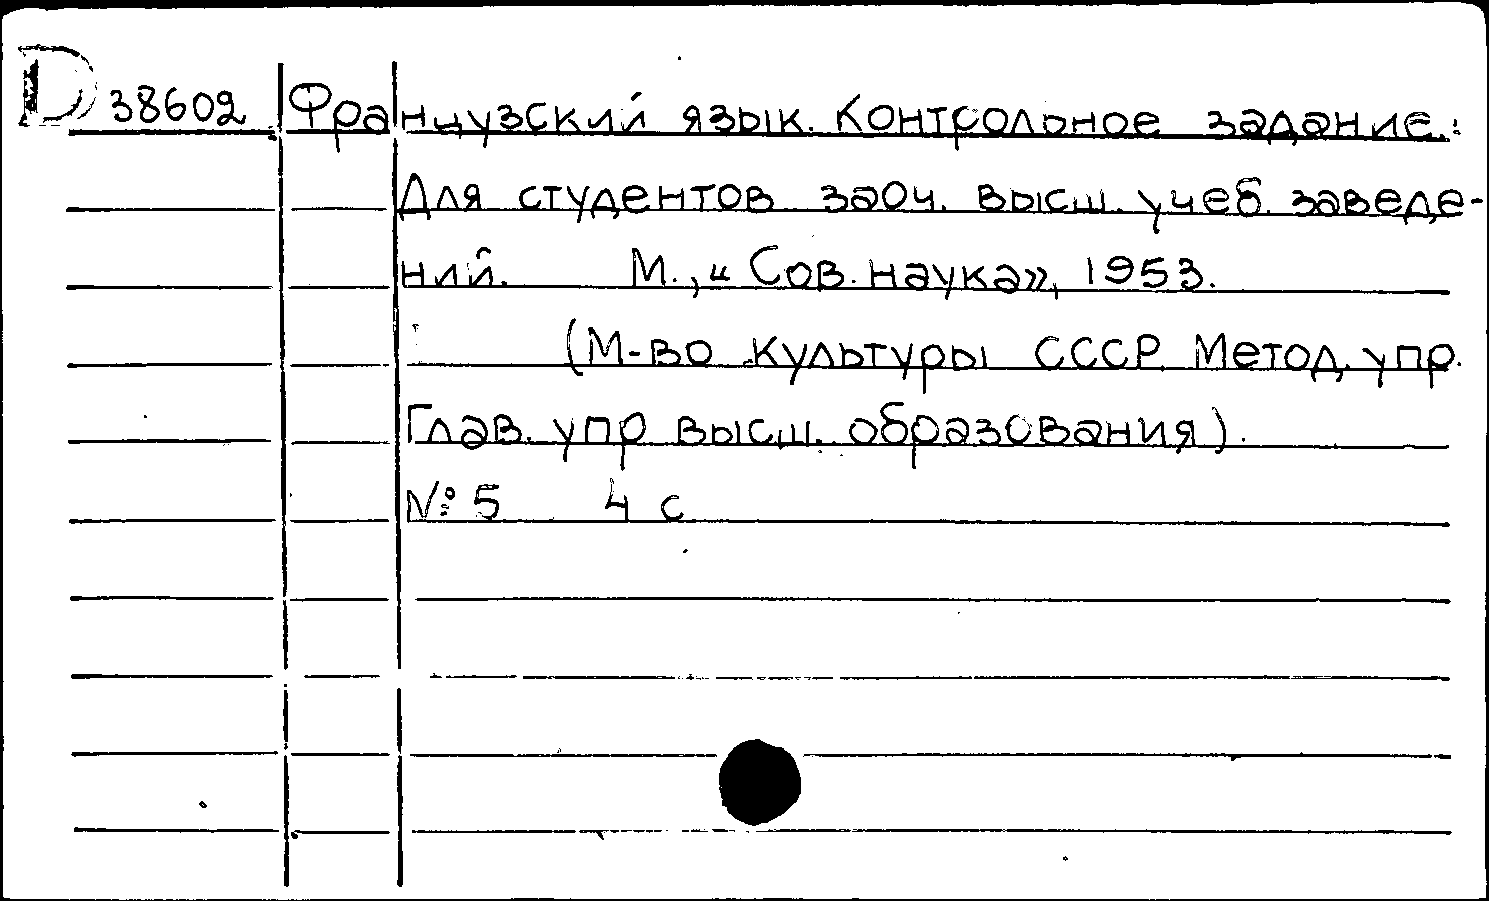 D 38602 Французский язык. Контрольное задание.:
Для студентов заоч. высш. учеб. заведе-
ний. М., "Сов. наука», 1953.
(М-во культуры СССР. Метод. упр.
Глав. упр высш. образования).
№ 5 4 с